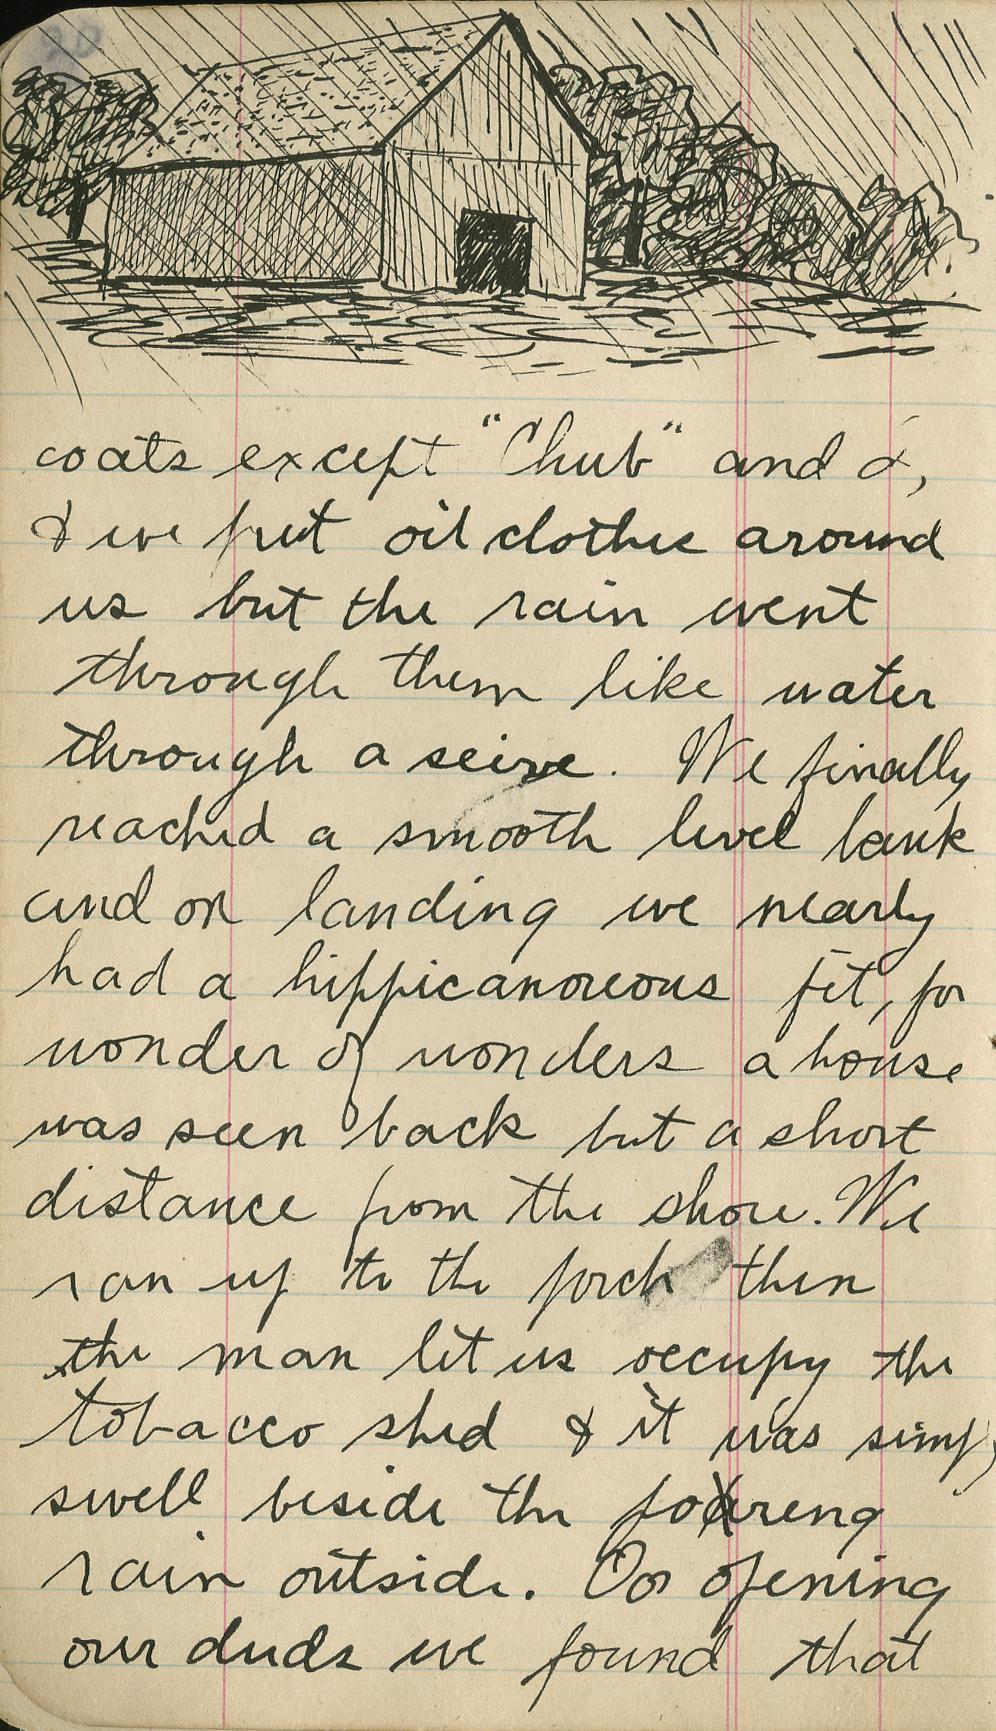 20
coats except "Chub" and I,
& we put oil clothes around
us but the rain went
through them like water
through a seive. We finally
reached a smooth level bank
and on landing we nearly
had a hippicanoreous fit, for
wonder of wonders a house
was seen back but a short
distance from the shore. We
ran up to the porch then
the man let us occupy the
tobacco shed & it was simply
swell beside the poureng
rain outside. On opening
our duds we found that